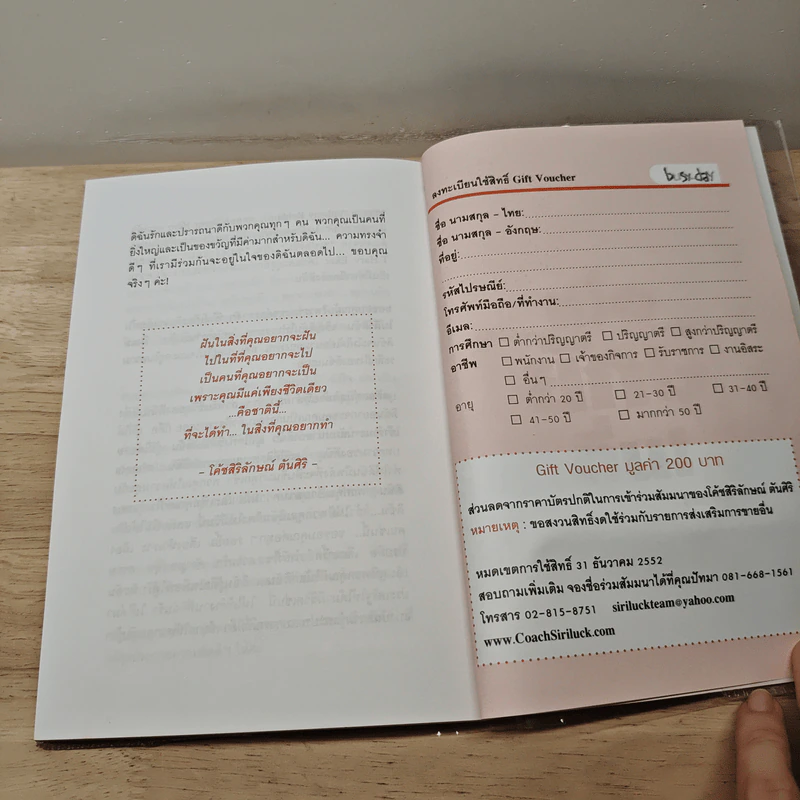 ดิฉันรักและปรารถนาดีกับพวกคุณทุกๆ คน พวกคุณเป็นคนที่
ยิ่งใหญ่และเป็นของขวัญที่มีค่ามากสำหรับดิฉัน... ความทรงจำ
ดีๆ ที่เรามีร่วมกันจะอยู่ในใจของดิฉันตลอดไป... ขอบคุณ
จริงๆ ค่ะ!
ฝันในสิ่งที่คุณอยากจะฝัน
ไปในที่ที่คุณอยากจะไป
เป็นคนที่คุณอยากจะเป็น
เพราะคุณมีแค่เพียงชีวิตเดียว
...คือชาตินี้...
ที่จะได้ทำ... ในสิ่งที่คุณอยากทำ
– โค้ชสิริลักษณ์ ตันศิริ –
ลงทะเบียนใช้สิทธิ์ Gift Voucher
busy-day
ชื่อ นามสกุล - ไทย:
ชื่อ นามสกุล - อังกฤษ:
ที่อยู่:
รหัสไปรษณีย์:
โทรศัพท์มือถือ/ที่ทำงาน:
อีเมล:
การศึกษา ☐ ต่ำกว่าปริญญาตรี ☐ ปริญญาตรี ☐ สูงกว่าปริญญาตรี
อาชีพ ☐ พนักงาน ☐ เจ้าของกิจการ ☐ รับราชการ ☐ งานอิสระ
☐ อื่นๆ
อายุ ☐ ต่ำกว่า 20 ปี ☐ 21-30 ปี ☐ 31-40 ปี
☐ 41-50 ปี ☐ มากกว่า 50 ปี
Gift Voucher มูลค่า 200 บาท
ส่วนลดจากราคาบัตรปกติในการเข้าร่วมสัมมนาของโค้ชสิริลักษณ์ ตันศิริ
หมายเหตุ : ขอสงวนสิทธิ์งดใช้ร่วมกับรายการส่งเสริมการขายอื่น
หมดเขตการใช้สิทธิ์ 31 ธันวาคม 2552
สอบถามเพิ่มเติม จองชื่อร่วมสัมมนาได้ที่คุณปัทมา 081-668-1561
โทรสาร 02-815-8751 siriluckteam@yahoo.com
www.CoachSiriluck.com